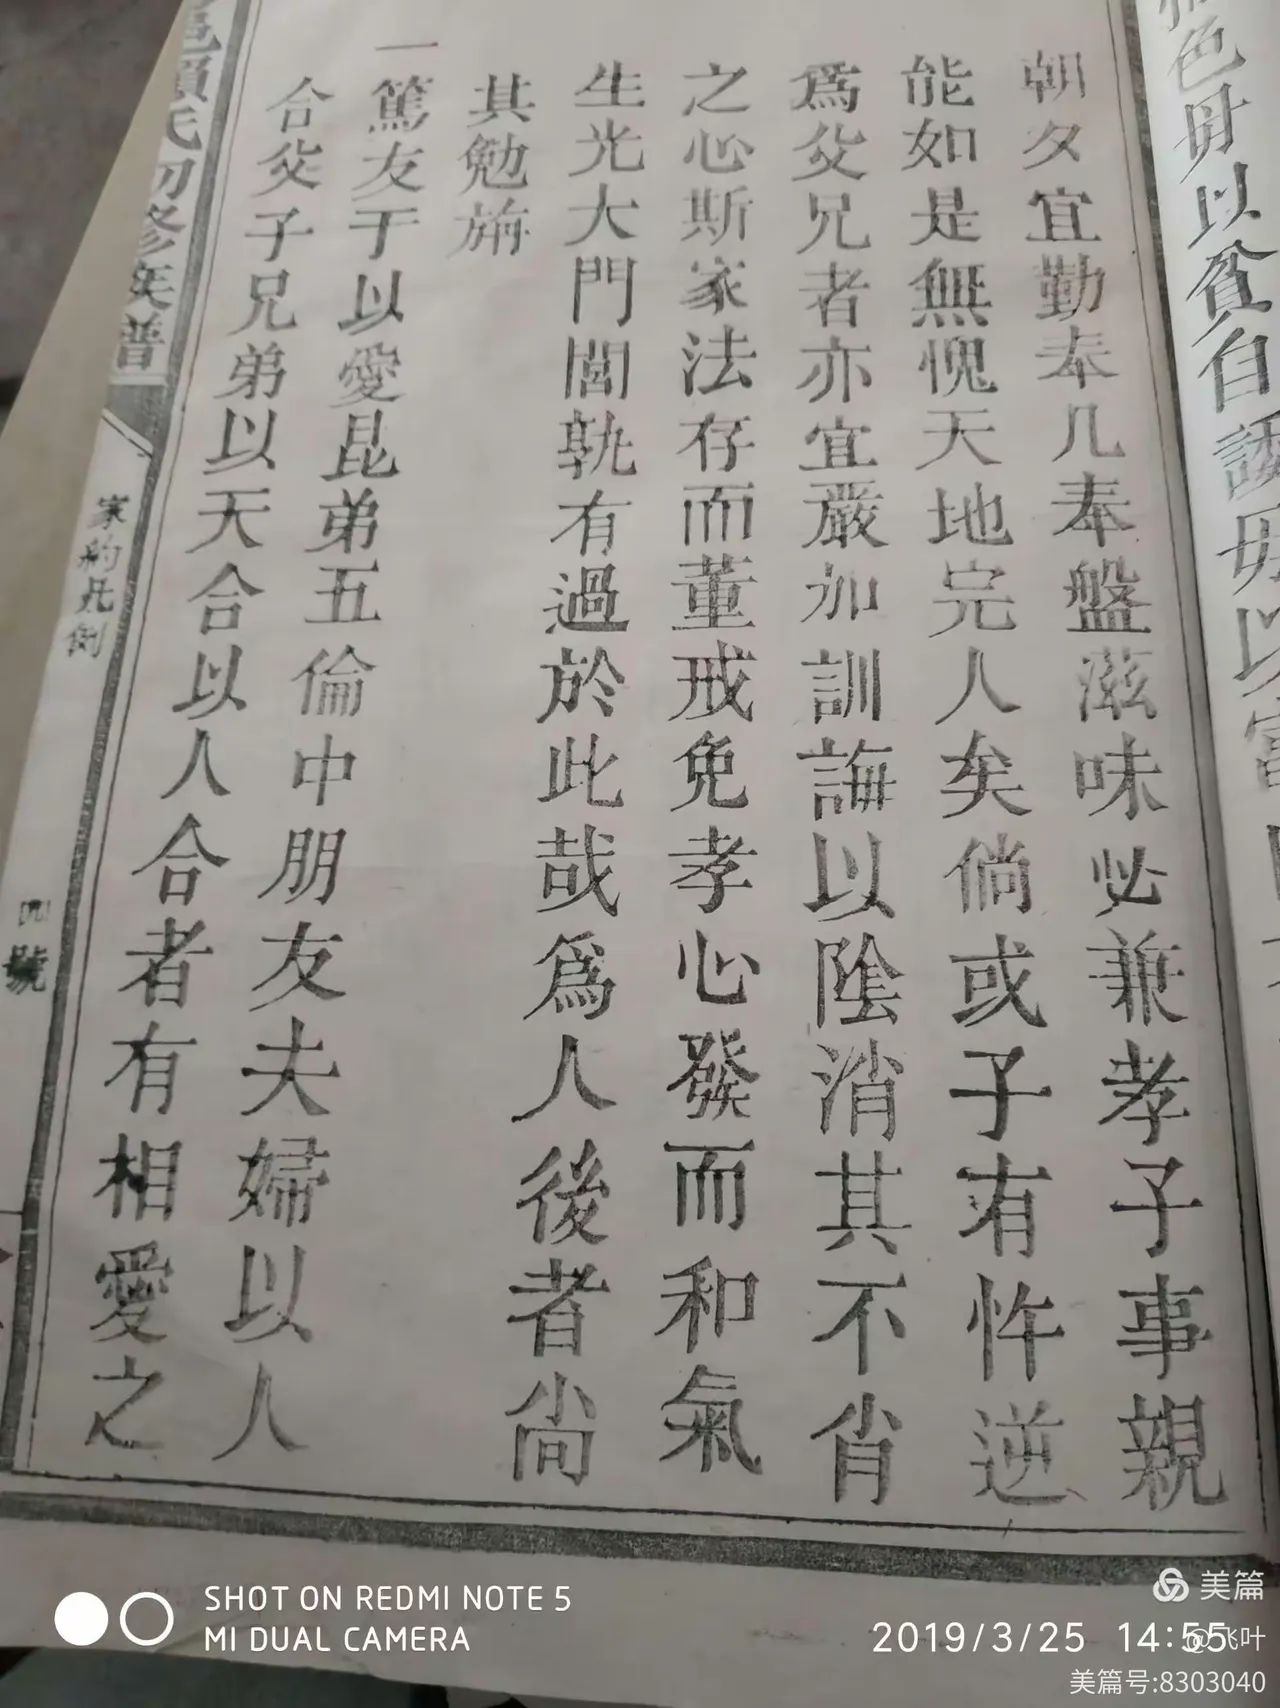 色毋以貧自諉毋以富
朝夕宜勤奉几奉盤滋味必兼孝子事親
能如是無愧天地完人矣倘或子有忤逆
為父兄者亦宜嚴加訓誨以陰消其不肖
之心斯家法存而董戒免孝心發而和氣
生光大門閭孰有過於此哉為人後者尚
其勉旃
一篤友于以愛昆弟五倫中朋友夫婦以人
合父子兄弟以天合以人合者有相愛之
邑賴氏初修族譜
家約凡例
四號
SHOT ON REDMI NOTE 5
MI DUAL CAMERA
美篇
2019/3/25 14:55
@飞叶
美篇号:8303040